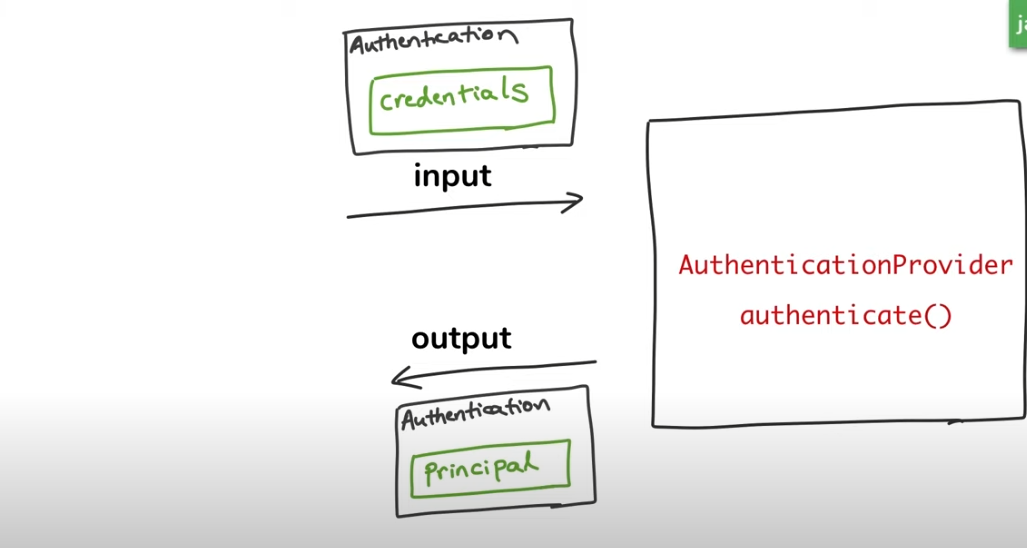 Authentication
credentials
input
AuthenticationProvider
authenticate()
output
Authentication
Principal